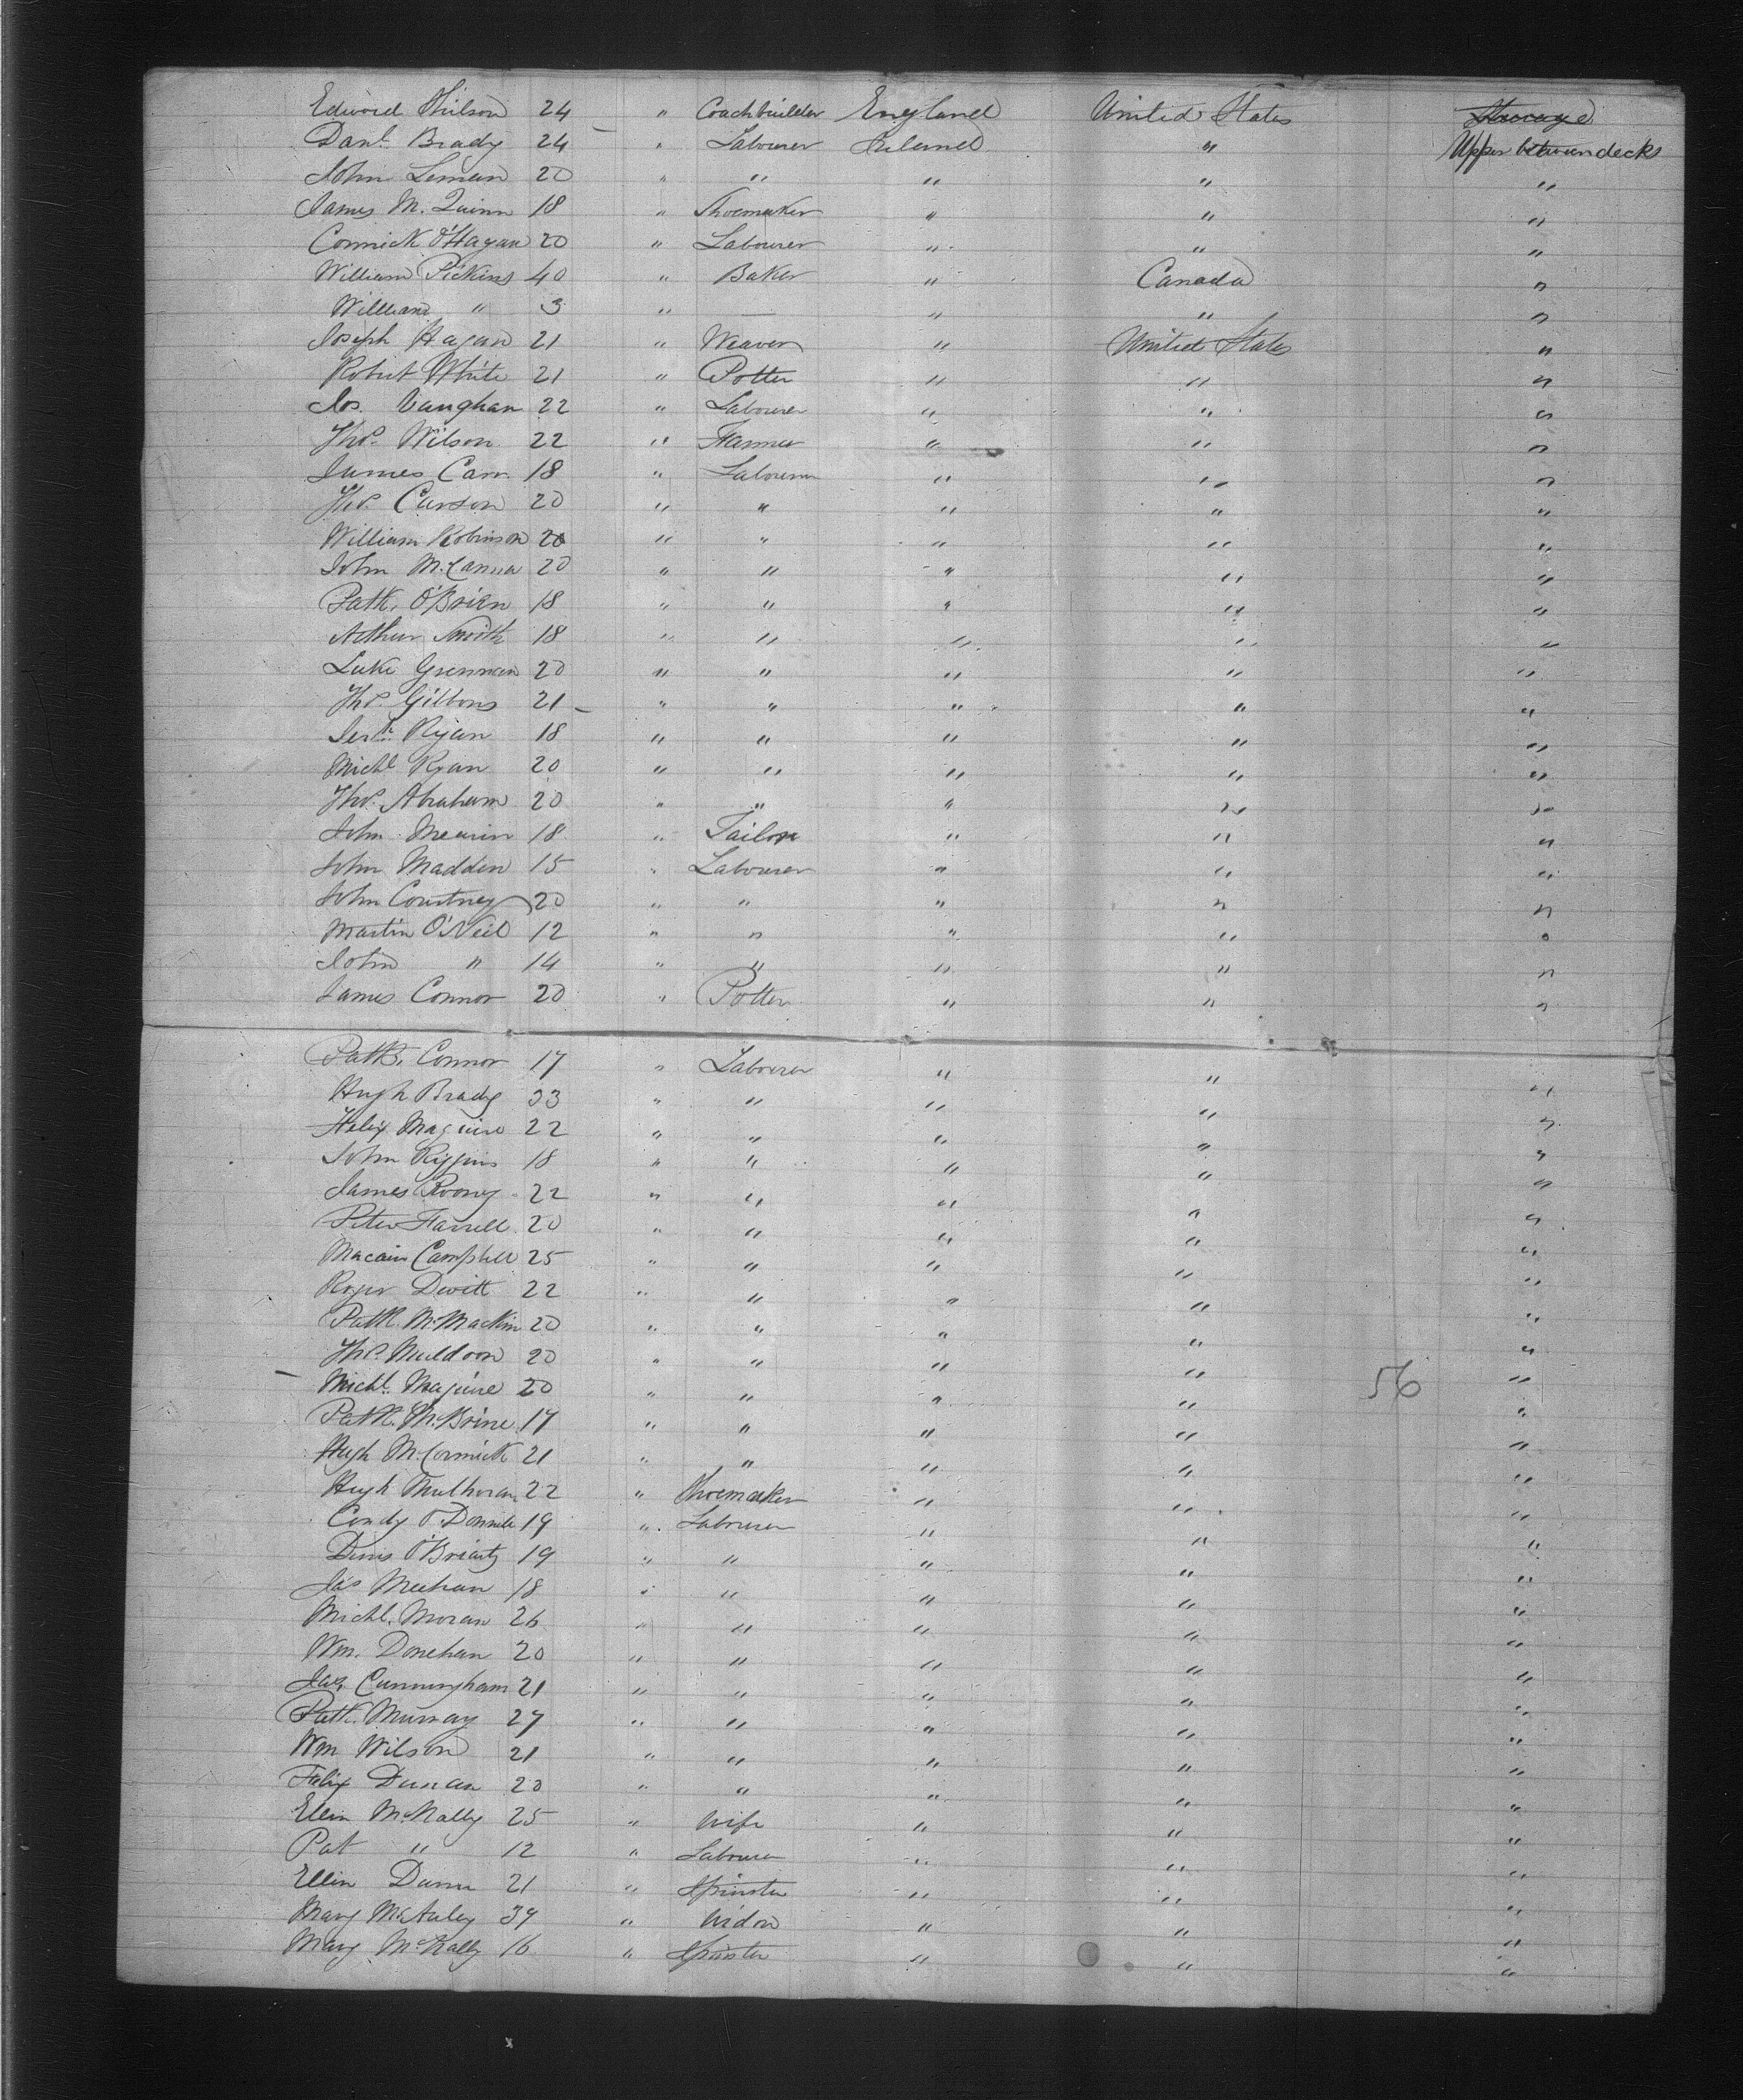 Edward Wilson 24 " Coachbuilder England United States Steerage
Danl. Brady 24 " Labourer Ireland " Upper between decks
John Leman 20 " " " " "
James M. Quinn 18 " Shoemaker " " "
Cormick O'Hagan 20 " Labourer " " "
William Pickins 40 " Baker " Canada "
William " 3 " " " "
Joseph Hagan 21 " Weaver " United States "
Robert White 21 " Potter " " "
Jos. Vaughan 22 " Labourer " " "
Thos. Wilson 22 " Farmer " " "
James Carr 18 " Labourer " " "
Thos. Carson 20 " " " " "
William Robinson 20 " " " " "
John McCanna 20 " " " " "
Patk. O'Brien 18 " " " " "
Arthur Smith 18 " " " " "
Luke Grennan 20 " " " " "
Thos. Gibbons 21 " " " " "
Ryan 18 " " " " "
Michl. Ryan 20 " " " " "
Thos. Abraham 20 " " " " "
John 18 " Tailor " " "
John Madden 15 " Labourer " " "
John Courtney 20 " " " " "
Martin O'Neil 12 " " " " "
John " 14 " " " " "
James Connor 20 " Potter " " "
Patk. Connor 17 " Labourer " " "
Hugh Brady 23 " " " " "
Felix Maguire 22 " " " " "
John Riggins 18 " " " " "
James Roony 22 " " " " "
Peter Farrell 20 " " " " "
Campbell 25 " " " " "
Roger Devitt 22 " " " " "
Patk. McMackin 20 " " " " "
Thos. Muldoon 20 " " " " "
Michl. Maguire 20 " " " 56 "
Patk. McBrine 17 " " " " "
Hugh McCormick 21 " " " " "
Hugh Mulhoran 22 " Shoemaker " " "
Condy O'Donnell 19 " Labourer " " "
Denis 19 " " " " "
Jas Meehan 18 " " " " "
Michl. Moran 26 " " " " "
Wm. Donehan 20 " " " " "
Jas. Cunningham 21 " " " " "
Patk. Murray 27 " " " " "
Wm Wilson 21 " " " " "
Felix Duncan 20 " " " " "
Ellen McNally 25 " Wife " " "
Pat " 12 " Labourer " " "
Ellen Dunn 21 " Spinster " " "
Mary McAuley 39 " Widow " " "
Mary McNally 16 " Spinster " " "